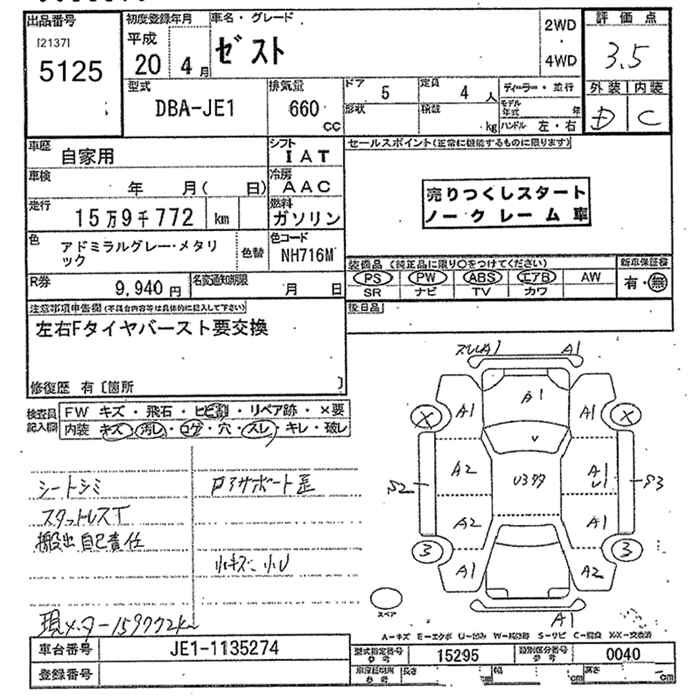 出品番号 初度登録年月 車名・グレード 2WD ・ 4WD 評価点
[2137] 5125 平成 20 4月 ゼスト 3.5
型式 排気量 ドア 5 定員 4人 ディーラー・並行 外装 内装
DBA-JE1 660 CC 形状 積載 kg モデル年式 年 ハンドル 左・右 D C
車歴 自家用 シフト IAT セールスポイント(正常に機能するものに限ります)
車検 年 月( 日) 冷房 AAC
走行 15万9千772 km 燃料 ガソリン
売りつくしスタート
ノークレーム車
色 アドミラルグレー・メタリック 色替 色コード NH716M
装備品 (純正品に限り○をつけてください) 新車保証書
PS PW ABS エアB AW 有・無
SR ナビ TV カワ
R券 9,940円 名変通知期限 月 日
後日品
注意事項申告欄(不具合内容等は具体的に記入して下さい)
左右Fタイヤバースト要交換
修復歴 有〔箇所 〕
検査員記入欄 FW キズ・飛石・ヒビ割・リペア跡・×要
内装 キズ・汚レ・コゲ・穴・スレ・キレ・破レ
シートシミ
スタットレスT
搬出自己責任
Pアサポート歪
小キズ 小U
現メーター159772km
スレA1 A1
A1 A1 A1
X X
A2 A1 U1
S2 U3 S3
A2 A1
3 3
A1 A2
A1
スペア
A-キズ E-エクボ U-凹み W-補修跡 S-サビ C-腐食 X・XX-交換済
車台番号 JE1-1135274
登録番号
型式指定番号 参考 15295 類別区分番号 参考 0040
長さ cm 幅 cm 高さ cm